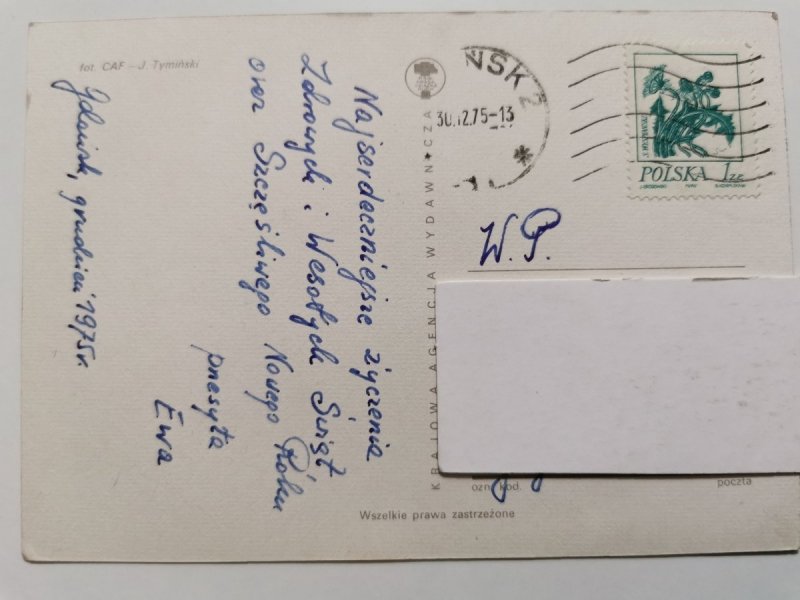 fot. CAF – J. Tymiński
Najserdeczniejsze życzenia
Zdrowych i Wesołych Świąt
oraz Szczęśliwego Nowego Roku
przesyła
Ewa
Gdańsk, grudzień 1975r.
KRAJOWA AGENCJA WYDAWNICZA
ŃSK 2
30.12.75-13
POLSKA 1 ZŁ
W. P.
ozn. kod.
poczta
Wszelkie prawa zastrzeżone